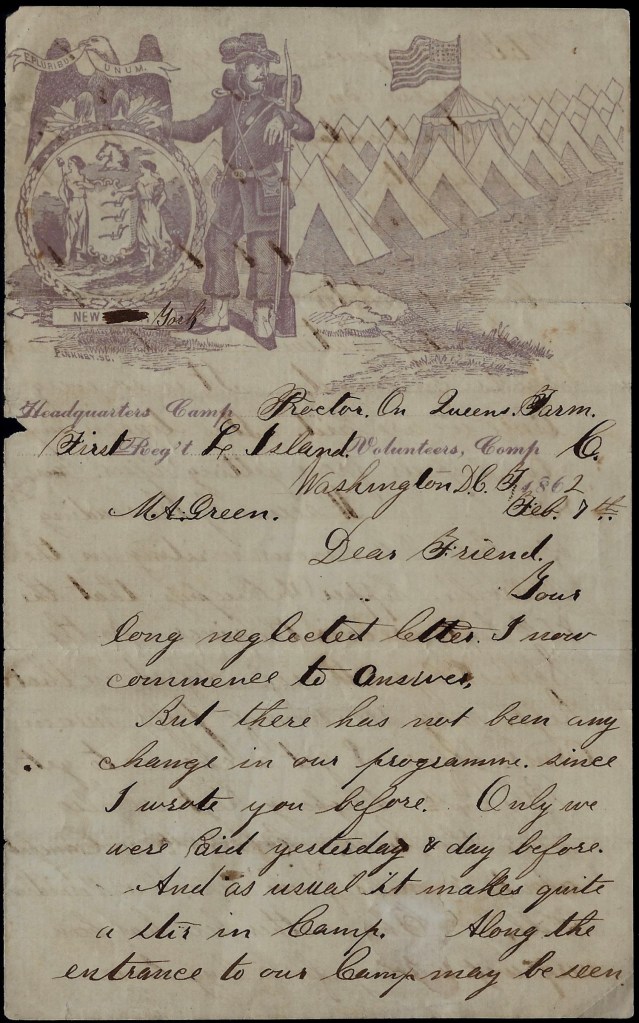 E PLURIBUS UNUM.
NEW York
Headquarters Camp Proctor. On Queens. Farm.
First Reg't L Island. Volunteers, Comp C.
Washington D.C. 1862
M.A. Green. Feb. 7th.
Dear Friend.
Your
long neglected letter. I now
commence to answer,
But there has not been any
change in our programme. since
I wrote you before. Only we
were Paid yesterday & day before.
And as usual it makes quite
a stir in Camp. Along the
entrance to our Camp may be seen